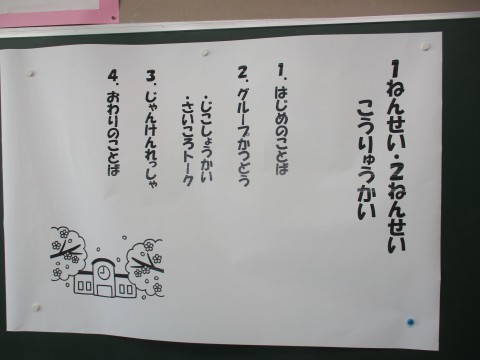 1ねんせい・2ねんせい
こうりゅうかい
1．はじめのことば
2．グループかつどう
・じこしょうかい
・さいころトーク
3．じゃんけんれっしゃ
4．おわりのことば